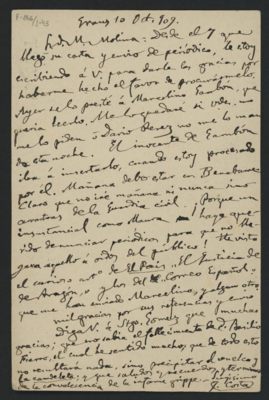 Graus 10 Oct. 909.
Sr. D. M. Molina: desde el 7 que
llegó su carta y envío de periódico, le estoy
escribiendo á V. para darle las gracias por
haberme hecho el favor de procurármelo.
Ayer se lo presté á Marcelino Gambón, que
quería leerlo. Me lo guardaré si Vds. no
me lo piden ó Darío Pérez no me lo man-
da esta noche. El inocente de Gambón
iba á insertarlo, cuando estoy procesado
por él. Mañana debo estar en Benabarre
Claro que no iré mañana ni nunca, sino
de la Guardia civil. Porque un
insustancial como Maura ¡haya que-
rido denunciar periódicos para que no lle-
gara aquello á oídos del público! He visto
el curioso artº de El País "El Justicia de
de Aragón," y los del "Correo Español"
que me han enviado Marcelino, y algun otro,
mil gracias por sus referencias y envío
diga V. á Stgo. Gómez que muchas
gracias; que no sabía el fallecimiento de D. Basilio
el cual he sentido mucho; que de todo esto
no resultará nada, sino precipitar el vuelco
y que saludos y recuerdos y término
de la convalecencia de la infame grippe
J. Costa